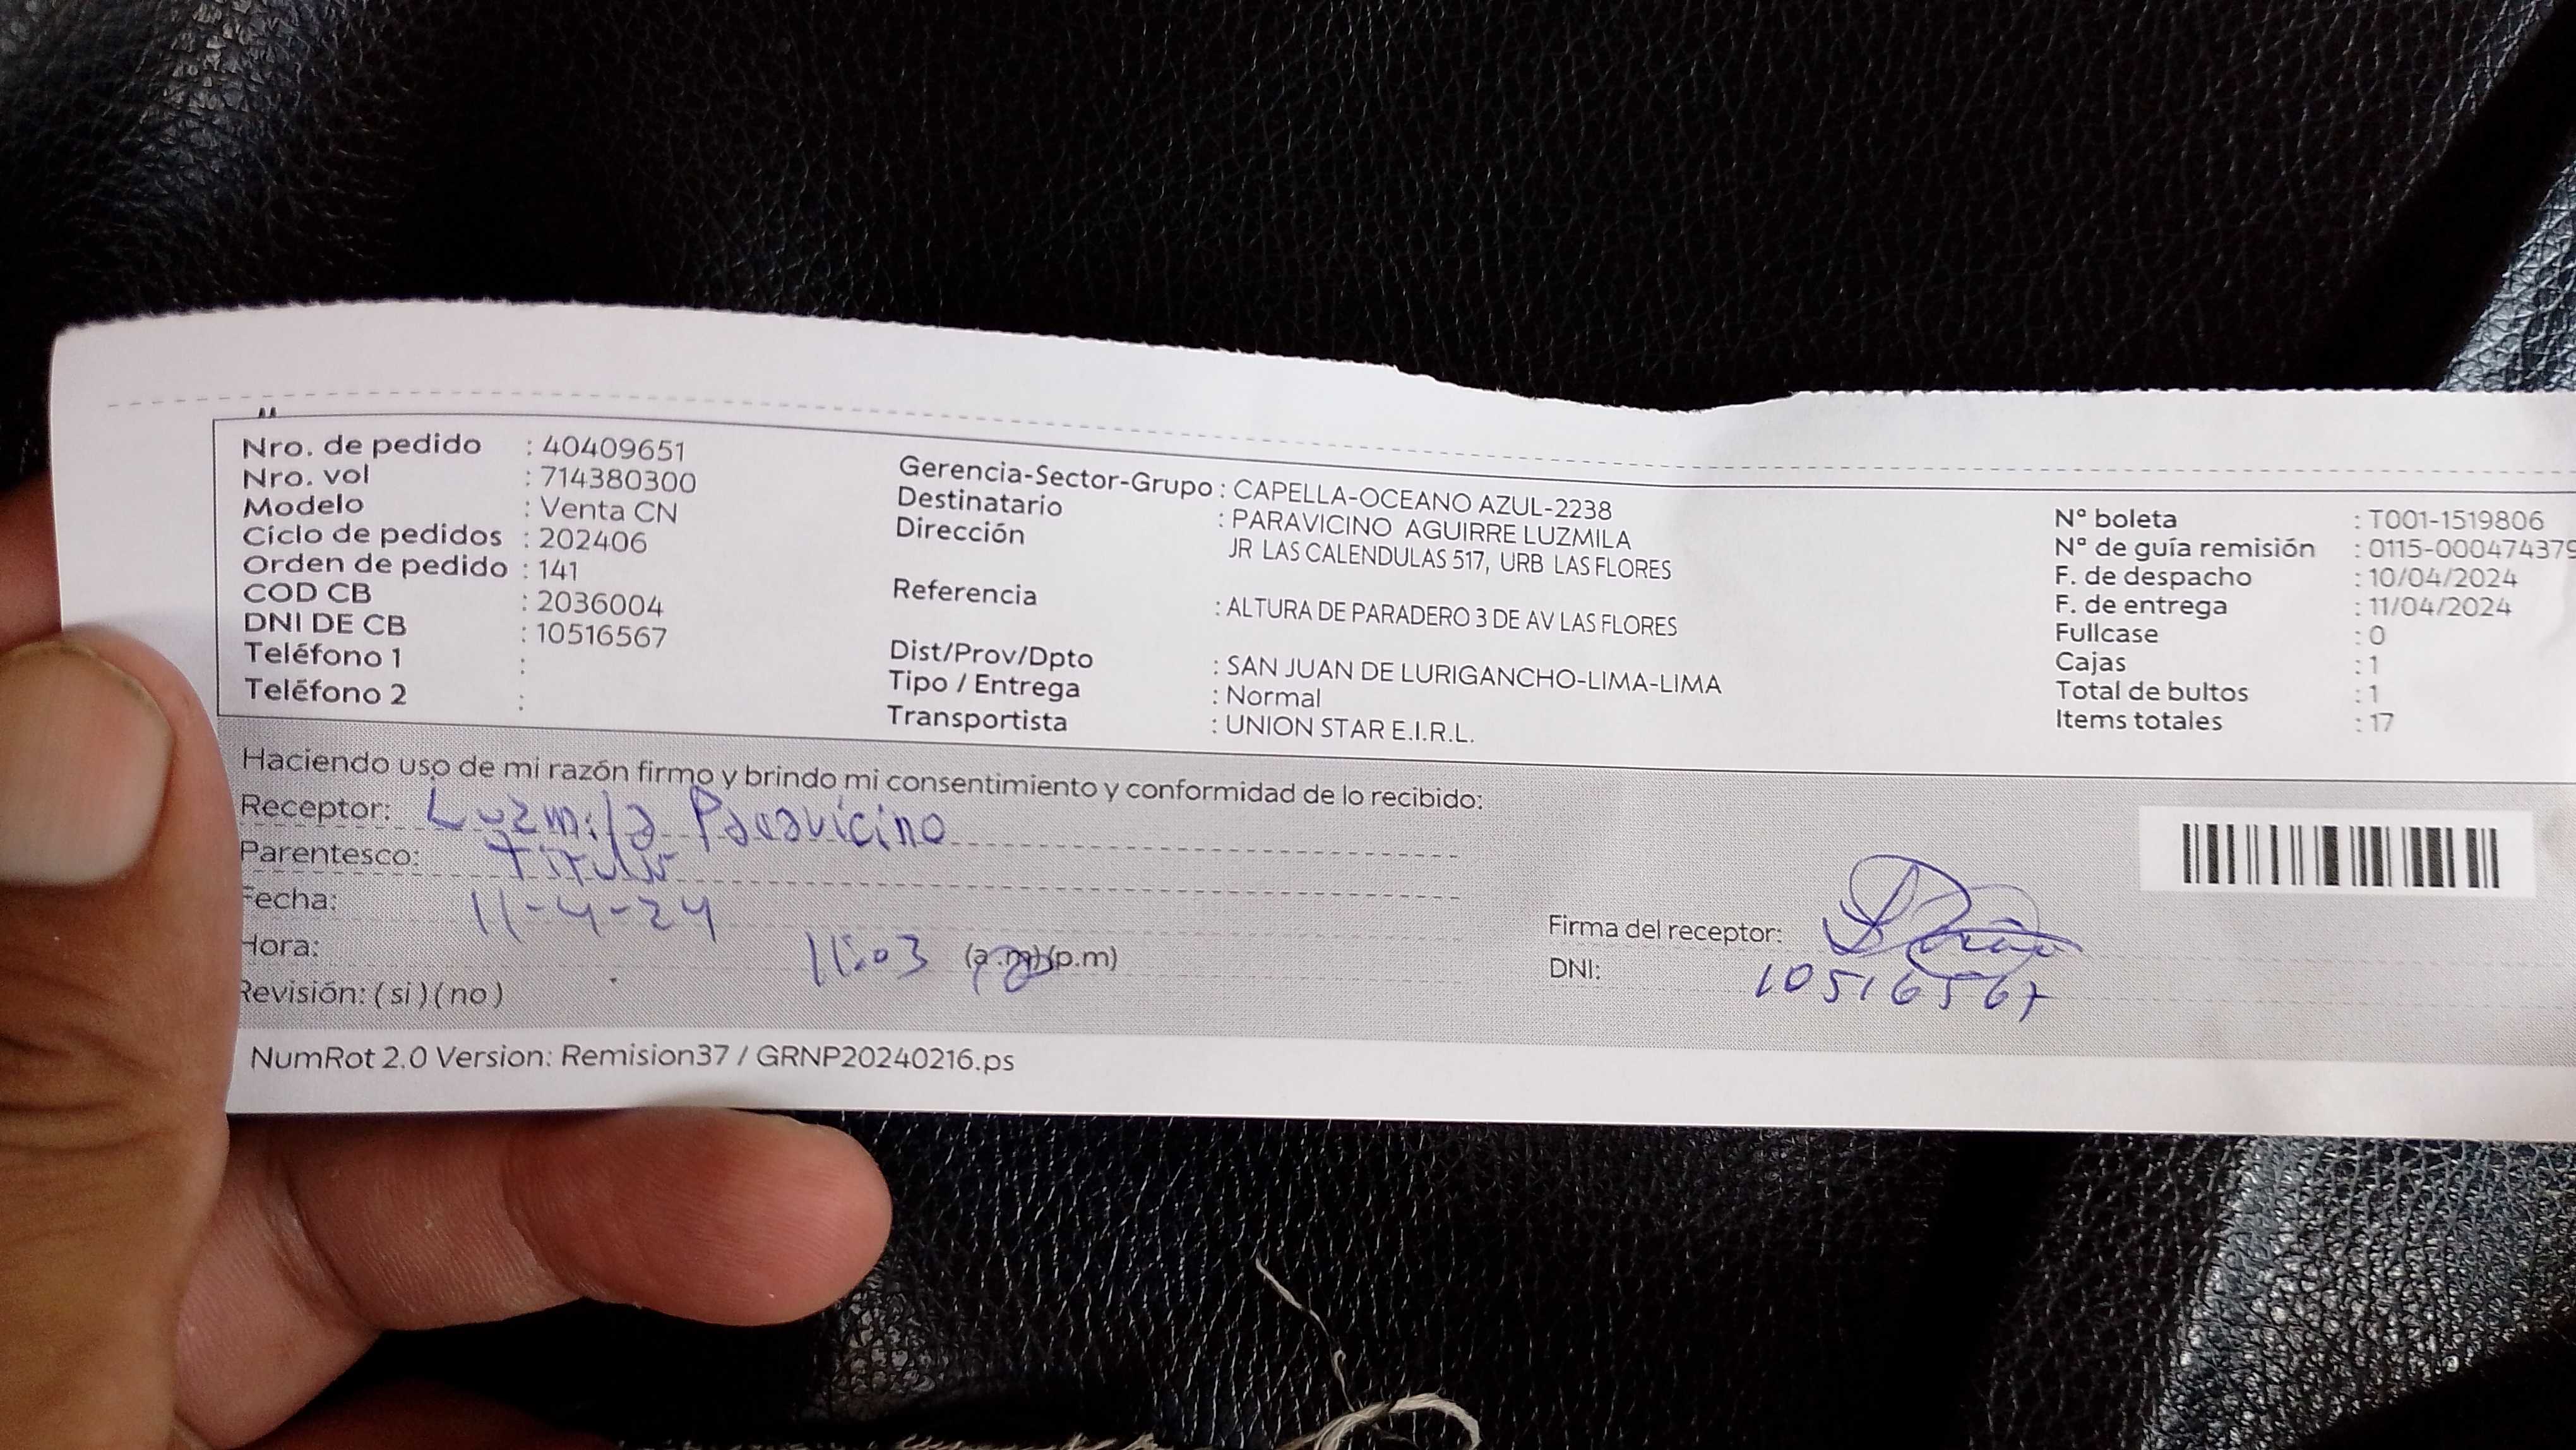 Nro. de pedido : 40409651
Nro. vol : 714380300
Modelo : Venta CN
Ciclo de pedidos : 202406
Orden de pedido : 141
COD CB : 2036004
DNI DE CB : 10516567
Teléfono 1 :
Teléfono 2 :
Gerencia-Sector-Grupo : CAPELLA-OCEANO AZUL-2238
Destinatario : PARAVICINO AGUIRRE LUZMILA
Dirección JR LAS CALENDULAS 517, URB LAS FLORES
Referencia : ALTURA DE PARADERO 3 DE AV LAS FLORES
Dist/Prov/Dpto : SAN JUAN DE LURIGANCHO-LIMA-LIMA
Tipo / Entrega : Normal
Transportista : UNION STAR E.I.R.L.
Nº boleta : T001-1519806
Nº de guía remisión : 0115-000474379
F. de despacho : 10/04/2024
F. de entrega : 11/04/2024
Fullcase : 0
Cajas : 1
Total de bultos : 1
Items totales : 17
Haciendo uso de mi razón firmo y brindo mi consentimiento y conformidad de lo recibido:
Receptor: Luzmila Paravicino
Parentesco: Titular
Fecha: 11-4-24
Hora: 11:03 (a.m)(p.m)
Revisión: ( si ) ( no )
Firma del receptor:
DNI: 10516567
NumRot 2.0 Version: Remision37 / GRNP20240216.ps